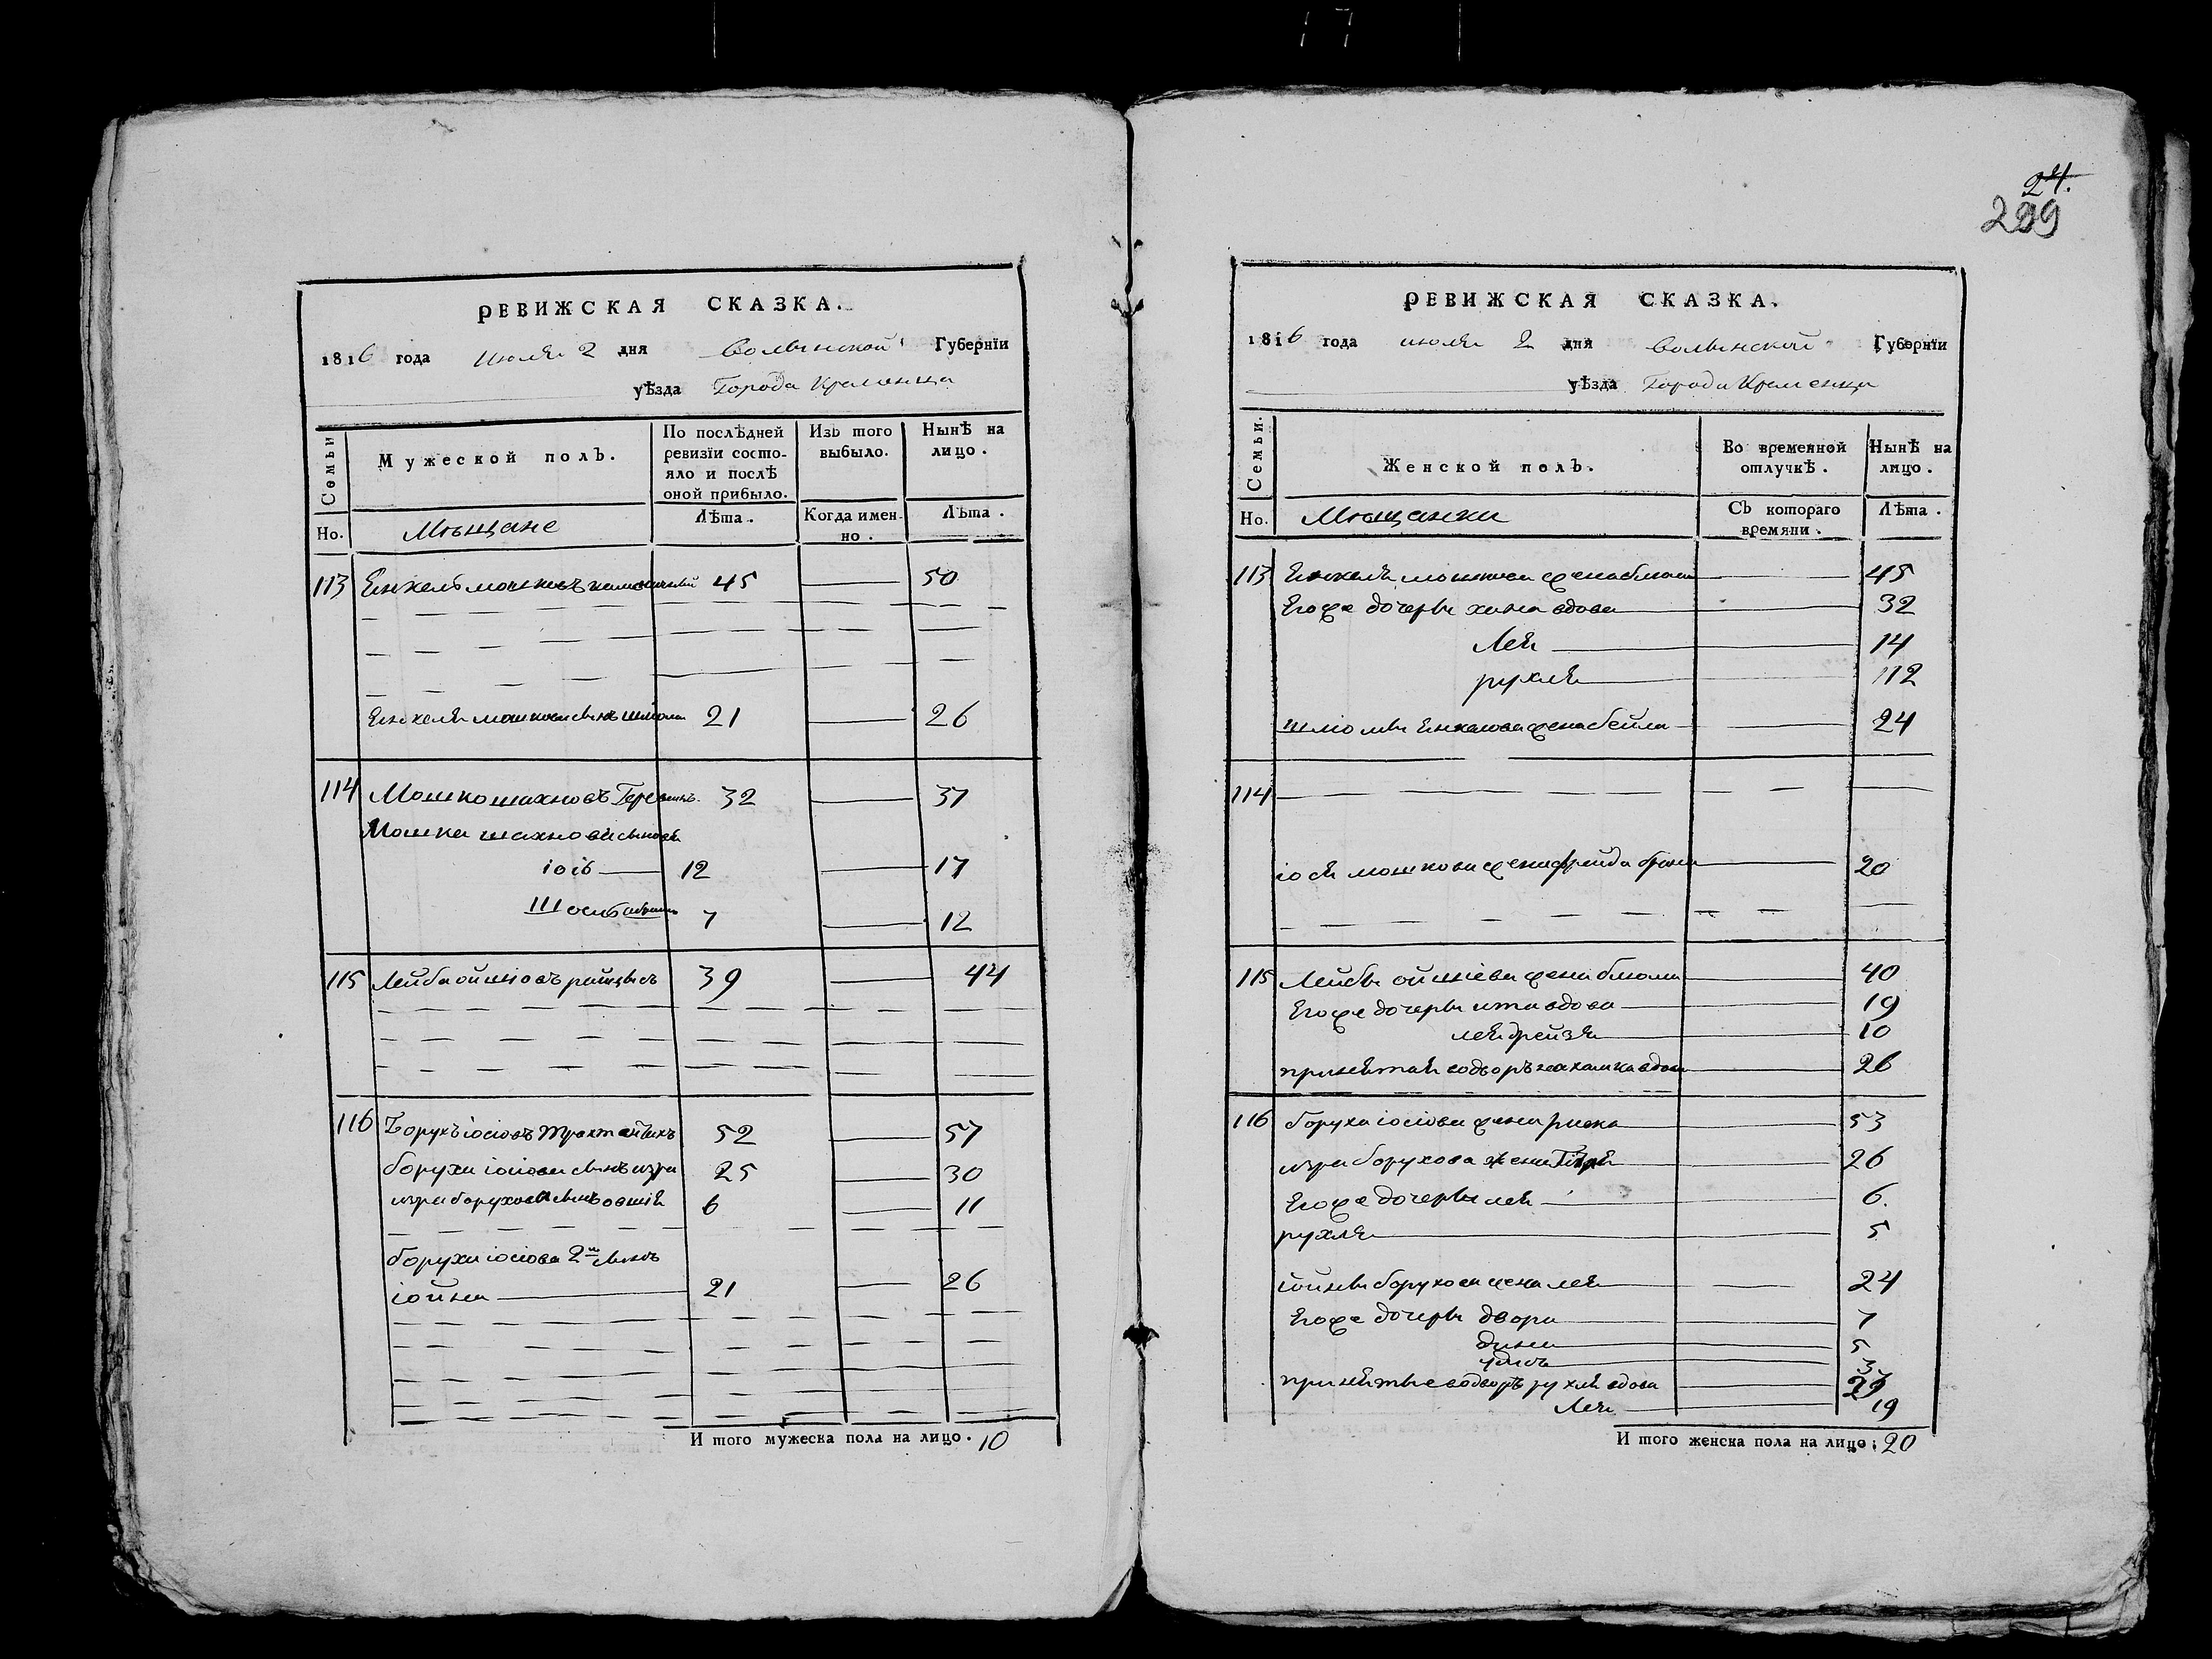 17
РЕВИЖСКАЯ СКАЗКА.
1816 года июля 2 дня Волынской Губернїи
уѣзда Города Кременца
Семьи
Мужеской полъ.
По послѣдней ревизїи состо-
яло и послѣ
оной прибыло.
Изъ того
выбыло.
Нынѣ на
лицо.
Но.
Мѣщане
Лѣта.
Когда имен-
но.
Лѣта.
113 Енкель мошковъ 45 50
Енкеля мошкова сынъ шлиома 21 26
114 Мошко шахновъ 32 37
Мошка шахнова сыновя
іось 12 17
7 12
115 Лейба ойшіовъ 39 44
116 Борухъ іосіовъ 52 57
боруха іосіова сынъ изра 25 30
изри борухова сынъ овшія 6 11
боруха іосіова 2й сынъ
іойна 21 26
И того мужеска пола на лицо. 10
24.
299
РЕВИЖСКАЯ СКАЗКА.
1816 года июля 2 дня Волынской Губернїи
уѣзда Города Кременца
Семьи.
Женской полъ.
Во временной
отлучкѣ.
Нынѣ на
лицо.
Но.
Мѣщанки
Съ котораго
времяни.
Лѣта.
113 Енкеля мошкова жена блюма 45
Егоже дочеры хина вдова 32
Лея 14
рухля 12
шліомы Енкелова жена бейла 24
114
іося мошкова жена фрейда 20
115 Лейбы ойшіева жена блюма 40
Егоже дочеры ита вдова 19
лея 10
принятая водворъ вдова 26
116 боруха іосіова жена 53
изри борухова жена 26
Егоже дочеры лея 6.
рухля 5
іойны борухова жена лея 24
Егоже дочеры двора 7
5
3
принятые водворъ рухля вдова
Лея 19
И того женска пола на лицо: 20